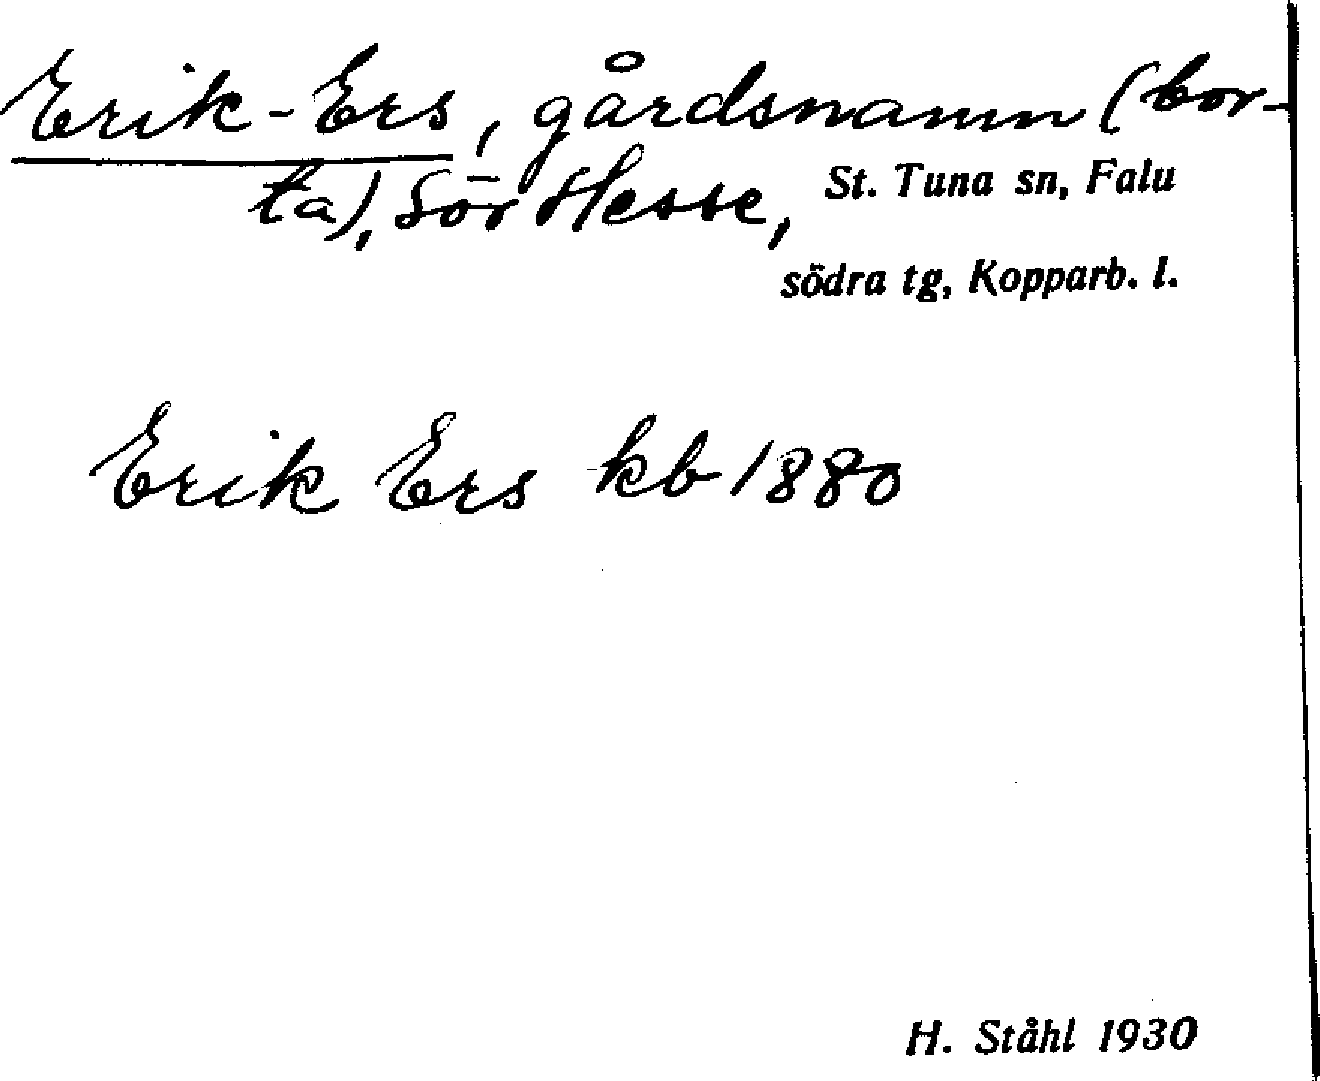 Erik-Ers, gårdsnamn (bor-
ta), Sör Hesse, St. Tuna sn, Falu
södra tg, Kopparb. l.
Erik Ers kb 1880
H. Ståhl 1930